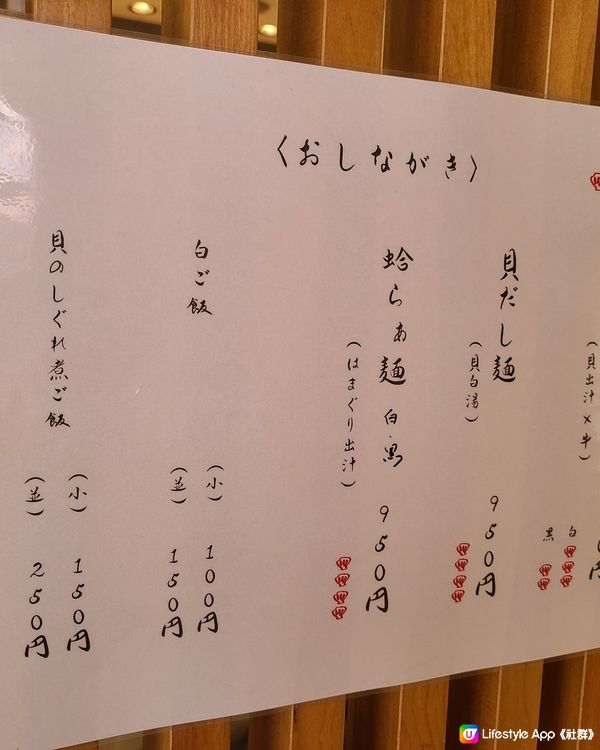 〈おしながき〉
（貝出汁×牛）
白
黒
円
貝だし麺
（貝白湯）
950円
蛤らぁ麺 白・黒
（はまぐり出汁）
950円
白ご飯
（小） 100円
（並） 150円
貝のしぐれ煮ご飯
（小） 150円
（並） 250円
U Lifestyle App《社群》